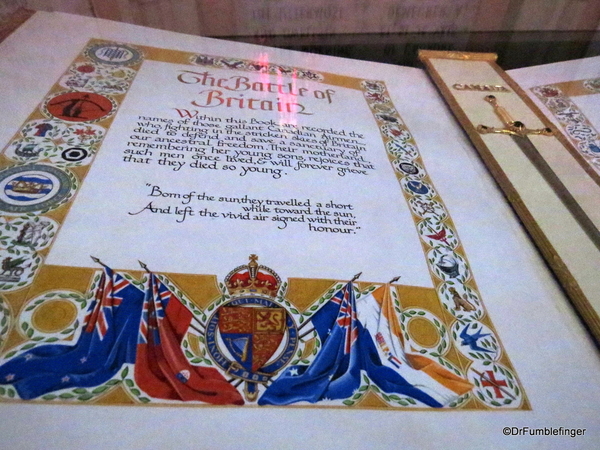 The Battle of
Britain
Within this Book are recorded the
names of those gallant Canadian Airmen
who, fighting in the stricken skies of Britain
died to defend and save a sanctuary of
our ancestral freedom. Their motherland,
remembering her young sons, rejoices that
such men once lived, & will forever grieve
that they died so young.
"Born of the sun they travelled a short
while toward the sun,
And left the vivid air signed with their
honour."
CANADA
©DrFumblefinger